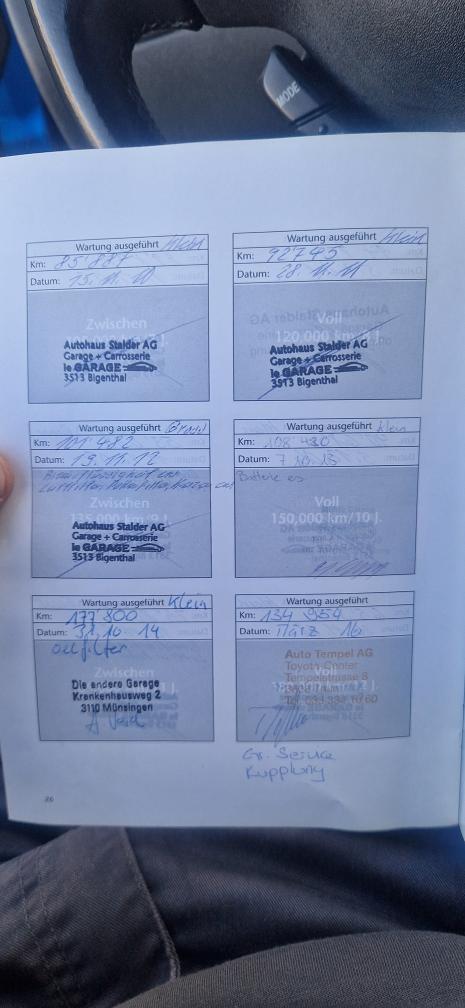 MODE
Wartung ausgeführt Klein
Km: 85'887
Datum: 15. 11. 10
Zwischen
Autohaus Stalder AG
Garage + Carrosserie
le GARAGE
3513 Bigenthal
Wartung ausgeführt Klein
Km: 92745
Datum: 28. 11. 11
Voll
120,000 km/8 J.
Autohaus Stalder AG
Garage + Carrosserie
le GARAGE
3513 Bigenthal
Wartung ausgeführt
Km: 101'482
Datum: 19. 11. 12
Zwischen
135,000 km/9 J.
Autohaus Stalder AG
Garage + Carrosserie
le GARAGE
3513 Bigenthal
Wartung ausgeführt Klein
Km: 108 480
Datum: 7 10. 13
Voll
150,000 km/10 J.
Wartung ausgeführt Klein
Km: 117 800
Datum: 31. 10. 14
Oelfilter
Zwischen
Die andere Garage
Krankenhausweg 2
3110 Münsingen
Wartung ausgeführt
Km: 134 954
Datum: März 16
Auto Tempel AG
Toyota-Center
Tempelstrasse 8
Gr. Service
Kupplung
26